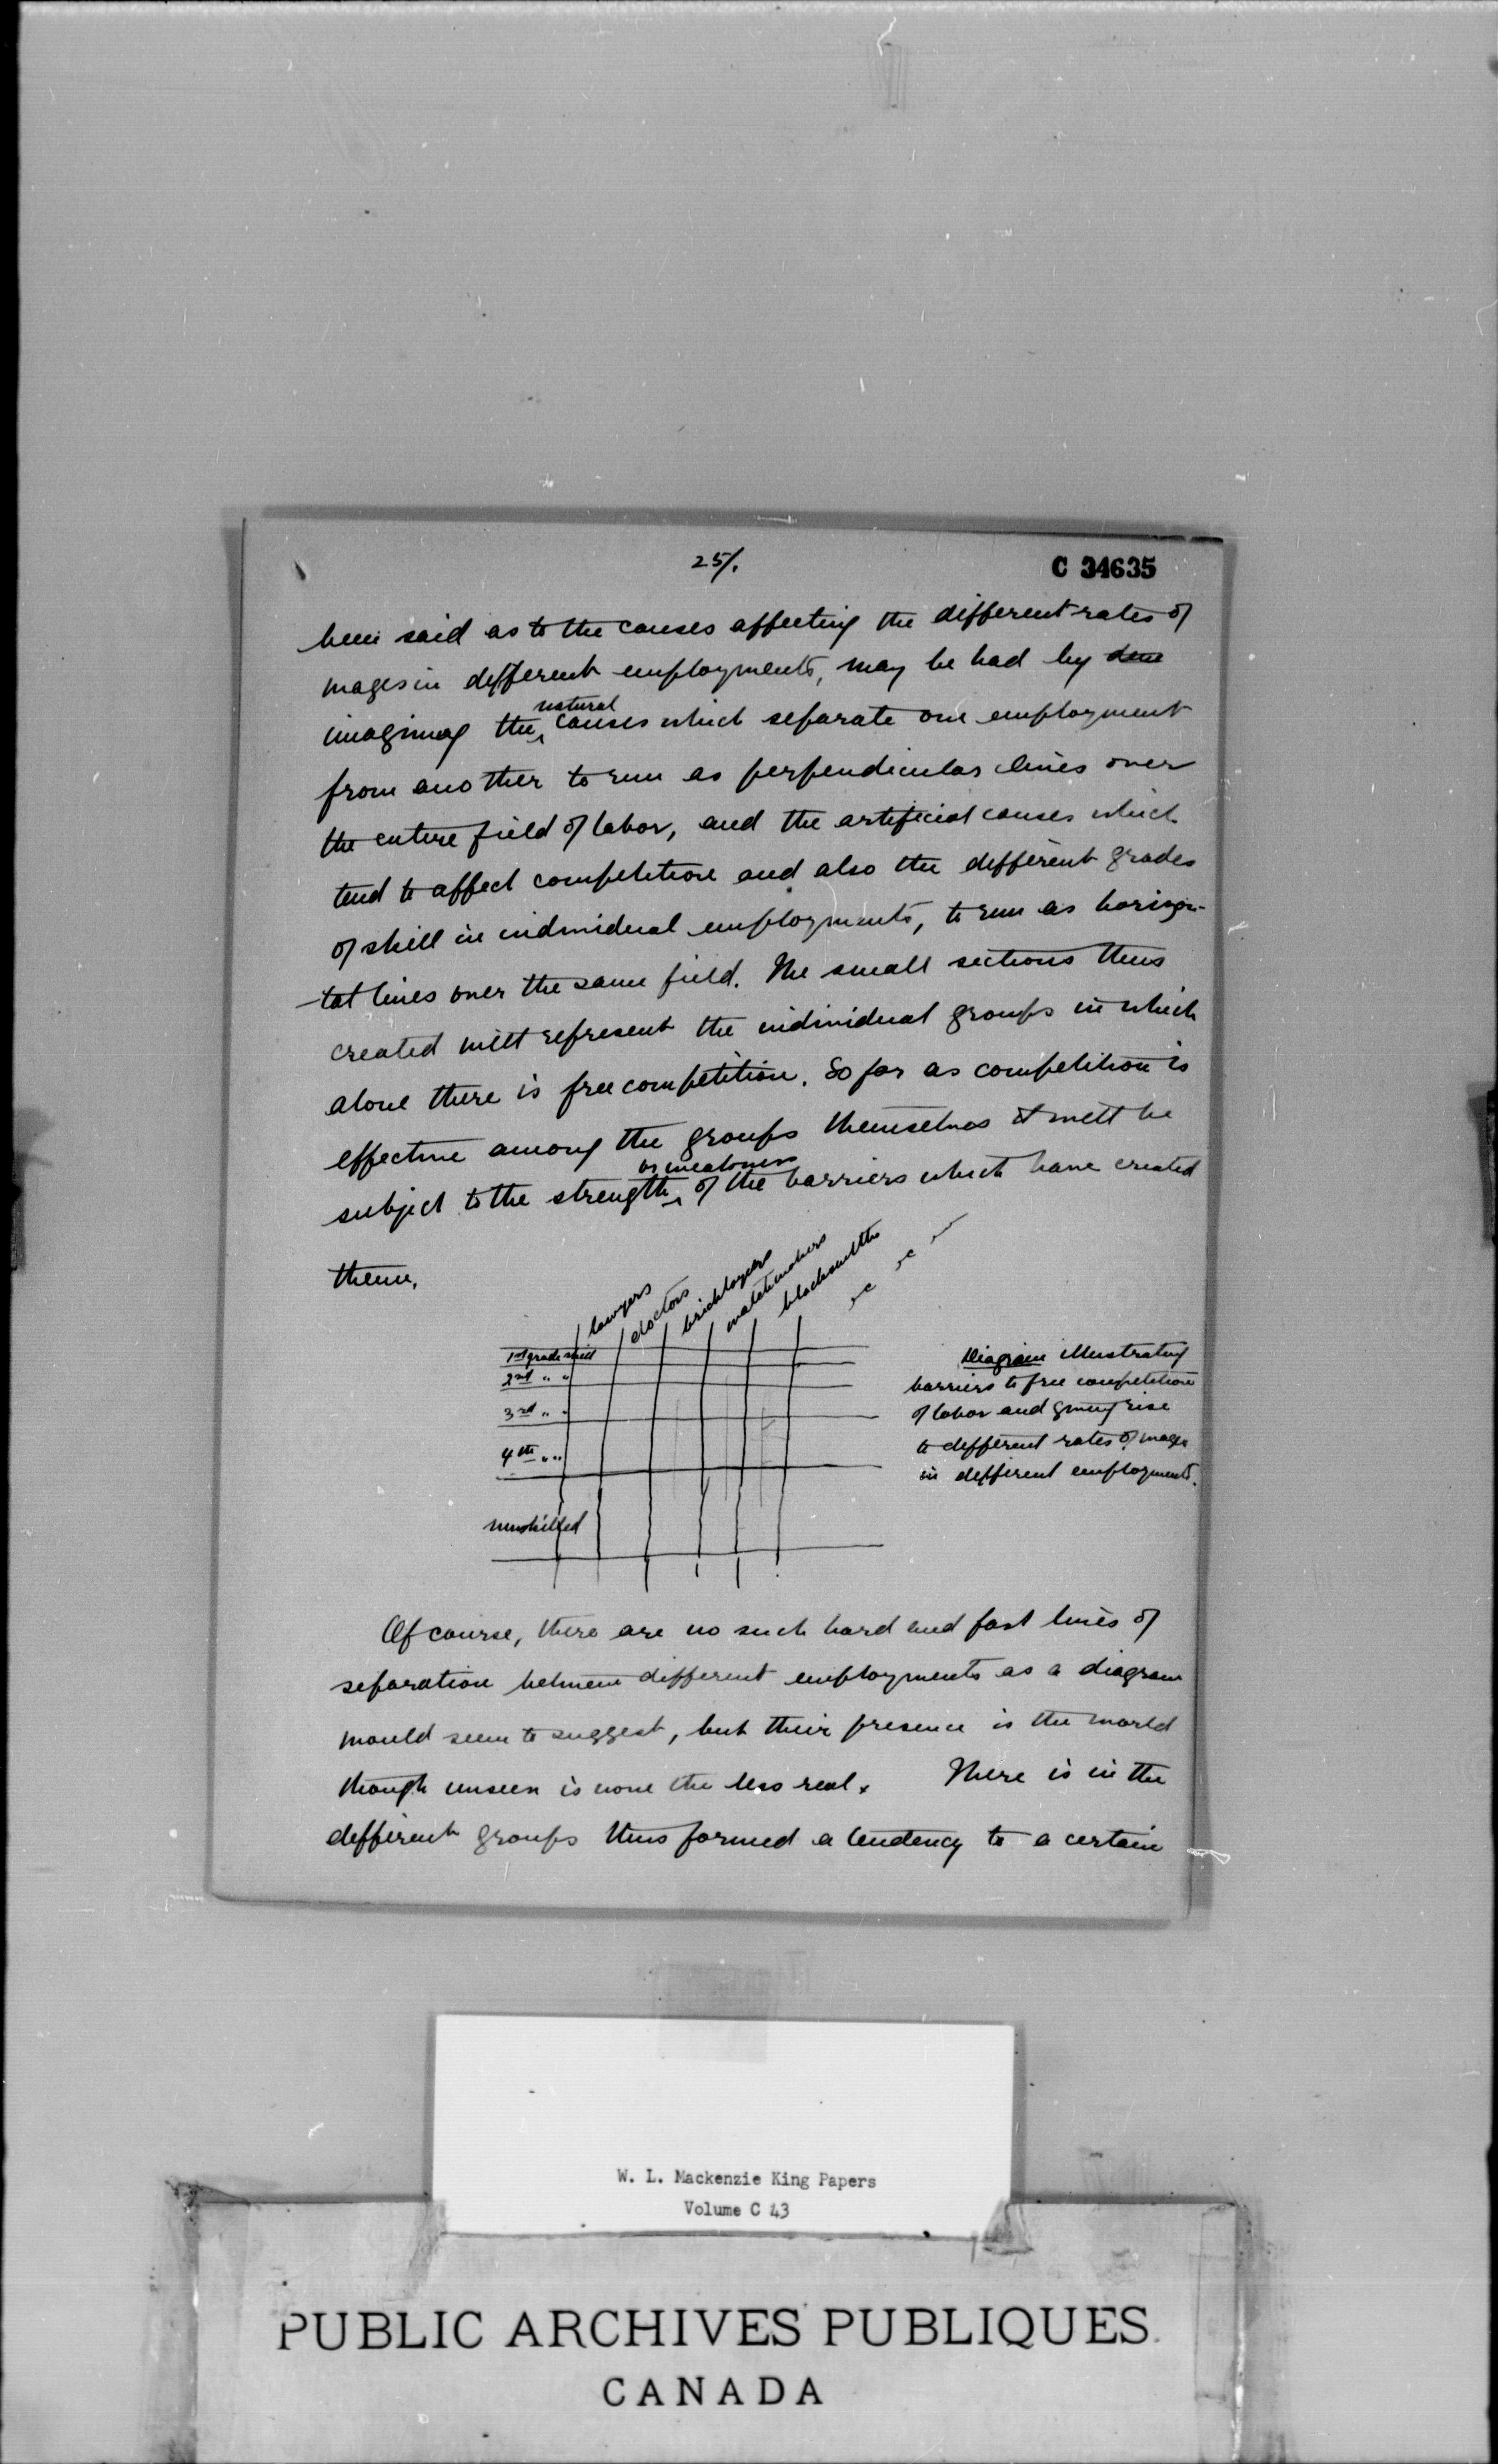 25/.
C 34635
been said as to the causes affecting the different rates of
wages in different employments, may be had by
natural
imagining the causes which separate one employment
from another to run as perpendicular lines over
the entire field of labor, and the artificial causes which
tend to affect competition and also the different grades
of skill in individual employments, to run as horizon-
-tal lines over the same field. The small sections thus
created will represent the individual groups in which
alone there is free competition. So far as competition is
effective among the groups themselves it will be
or weakness
subject to the strength of the barriers which have created
them.
lawyers
doctors
bricklayers
matchmakers
blacksmiths
1st grade skill
2nd " "
3rd " "
4th " "
unskilled
Diagram illustrating
barriers to free competition
of labor and giving rise
to different rates of wages
in different employments.
Of course, there are no such hard and fast lines of
separation between different employments as a diagram
would seem to suggest, but their presence in the world
though unseen is none the less real. There is in the
different groups thus formed a tendency to a certain
W. L. Mackenzie King Papers
Volume C 43
PUBLIC ARCHIVES PUBLIQUES
CANADA